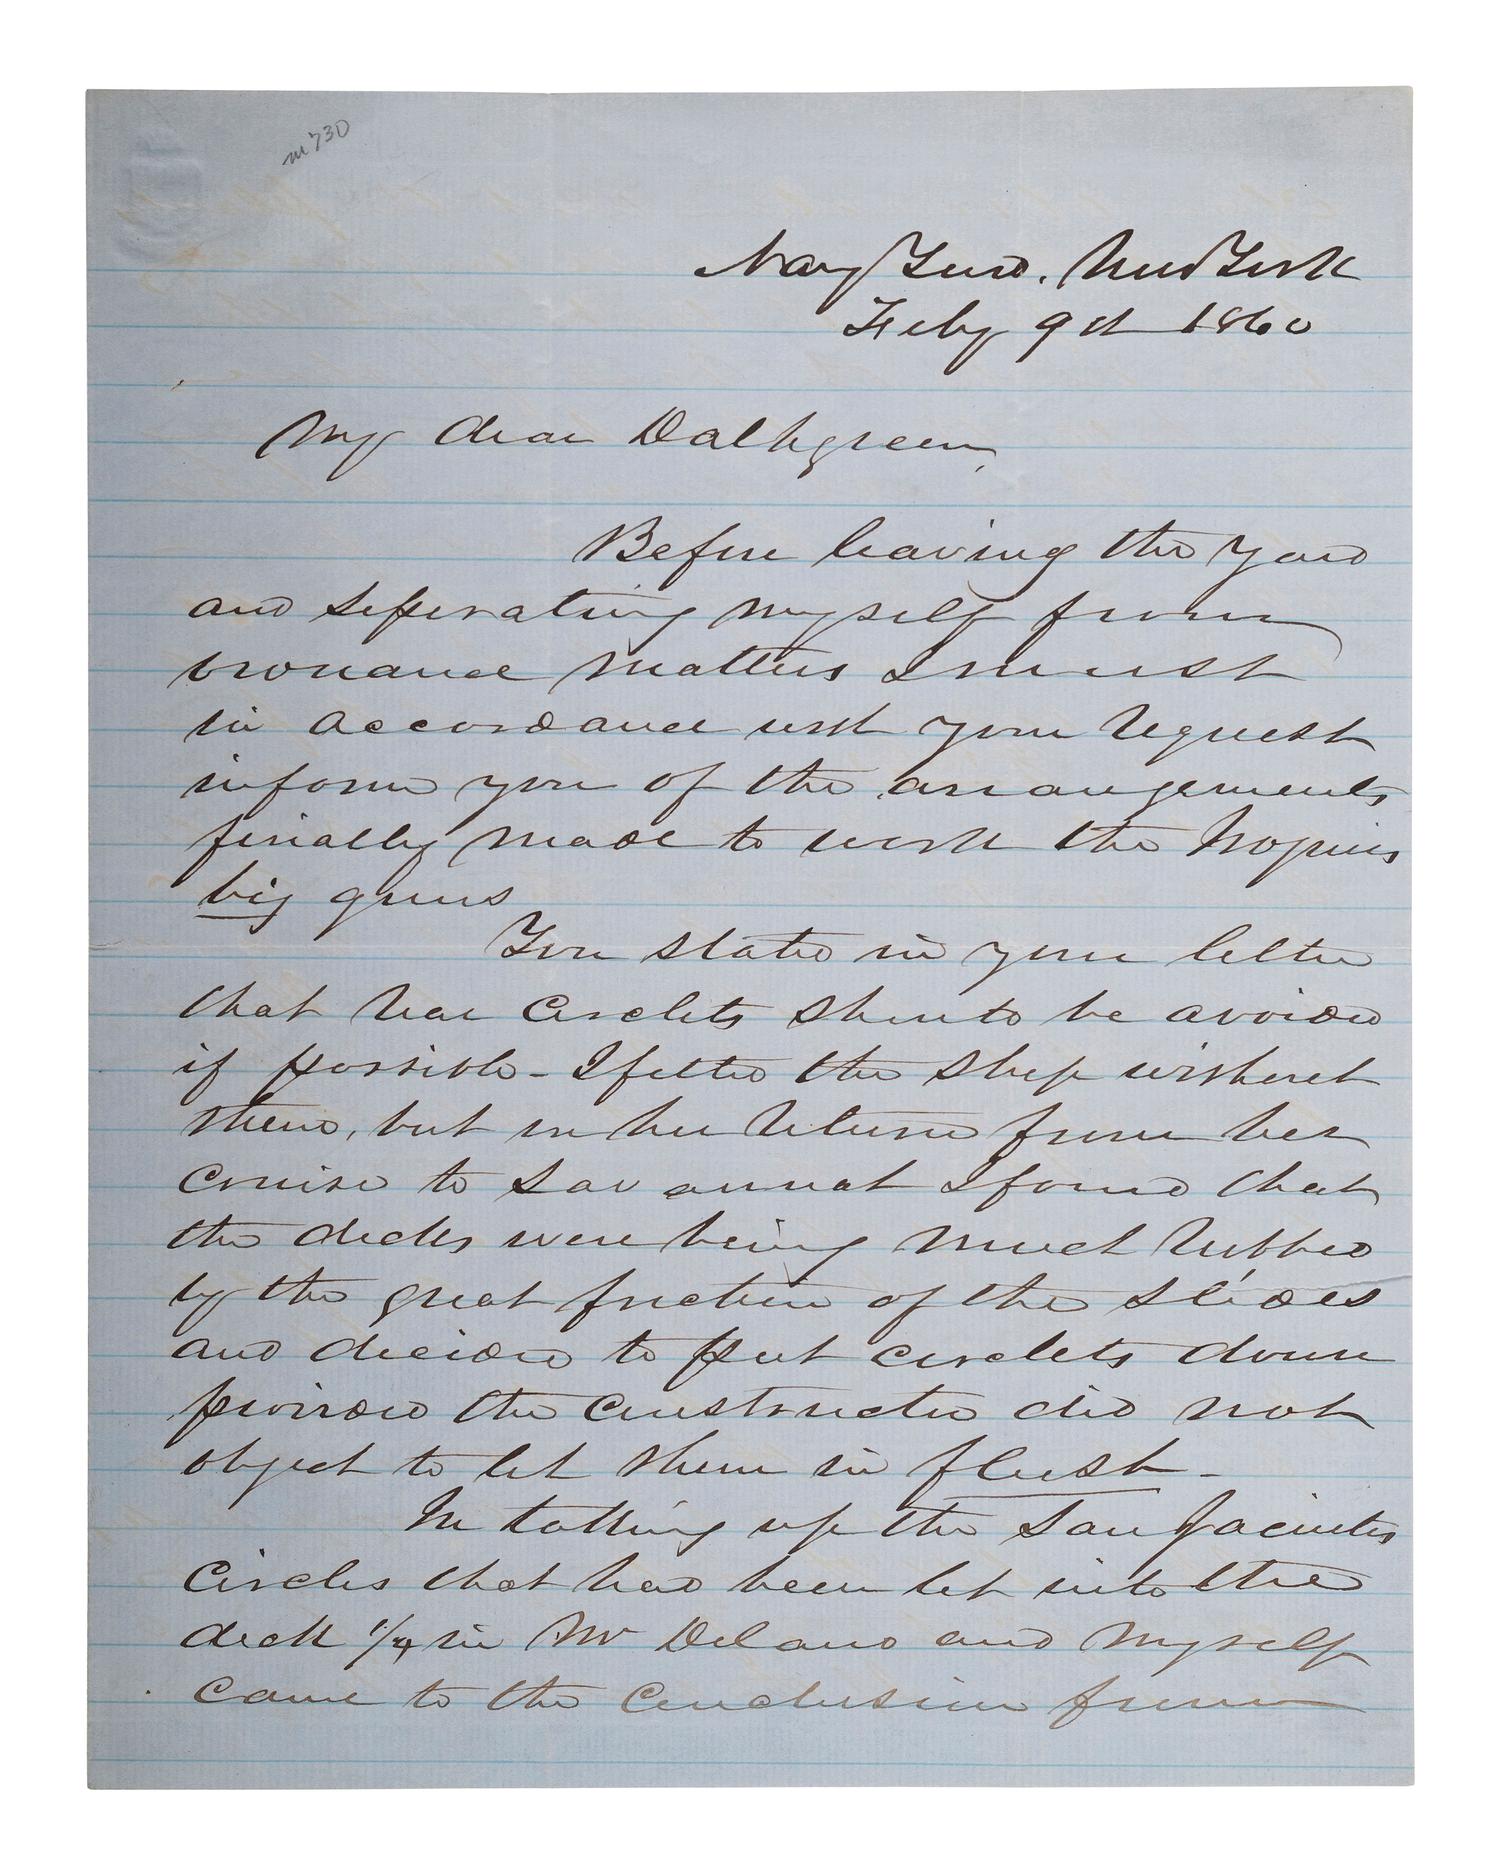 m730
Navy Yard. New York
Feby 9th 1860
My dear Dalhgreen,
Before leaving the Yard
and seperating myself from
ordnance matters I must
in accordance with your request
inform you of the arrangements
finally made to work the Iroquois
big guns
You stated in your letter
that rear Circlets should be avoided
if possible - I fitted the ship without
them, but on her return from her
cruise to Savannah I found that
the decks were being much rubbed
by the great friction of the slides
and decided to put circlets down
provided the Constructor did not
object to let them in flush -
In taking up the San Jacintos
Circles that had been let into the
deck 1/4 in Mr Delano and myself
came to the Conclusion from